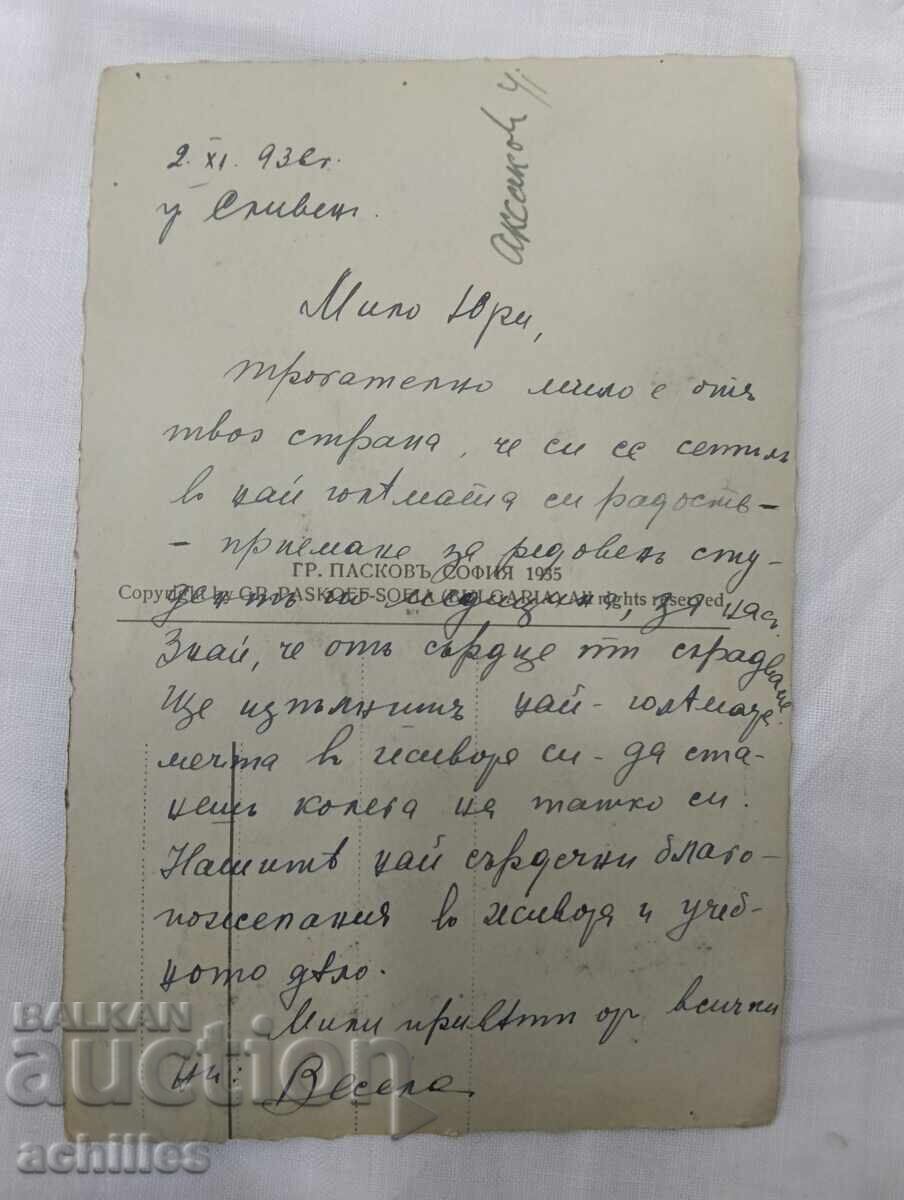 2. XI. 936 г.
гр Сливен.
Аксаков
Мило Юри,
трогателно мило е отъ
твоя страна, че си се сетилъ
в най голѣмата си радость –
– приемане за редовенъ сту-
ГР. ПАСКОВЪ, СОФИЯ 1935
Copyright by GR. PASKOFF-SOFIA (BULGARIA) All rights reserved
дентъ по медицина, за насъ.
Знай, че отъ сърдце ти се радваме.
Ще изпълнишъ най-голѣмата
мечта в живота си – да ста-
нешъ колега на татко си.
Нашитѣ най сърдечни благо-
пожелания в живота и учеб-
ното дѣло.
Мили привѣти от всички
ни: Весела
BALKAN
auction
achilles